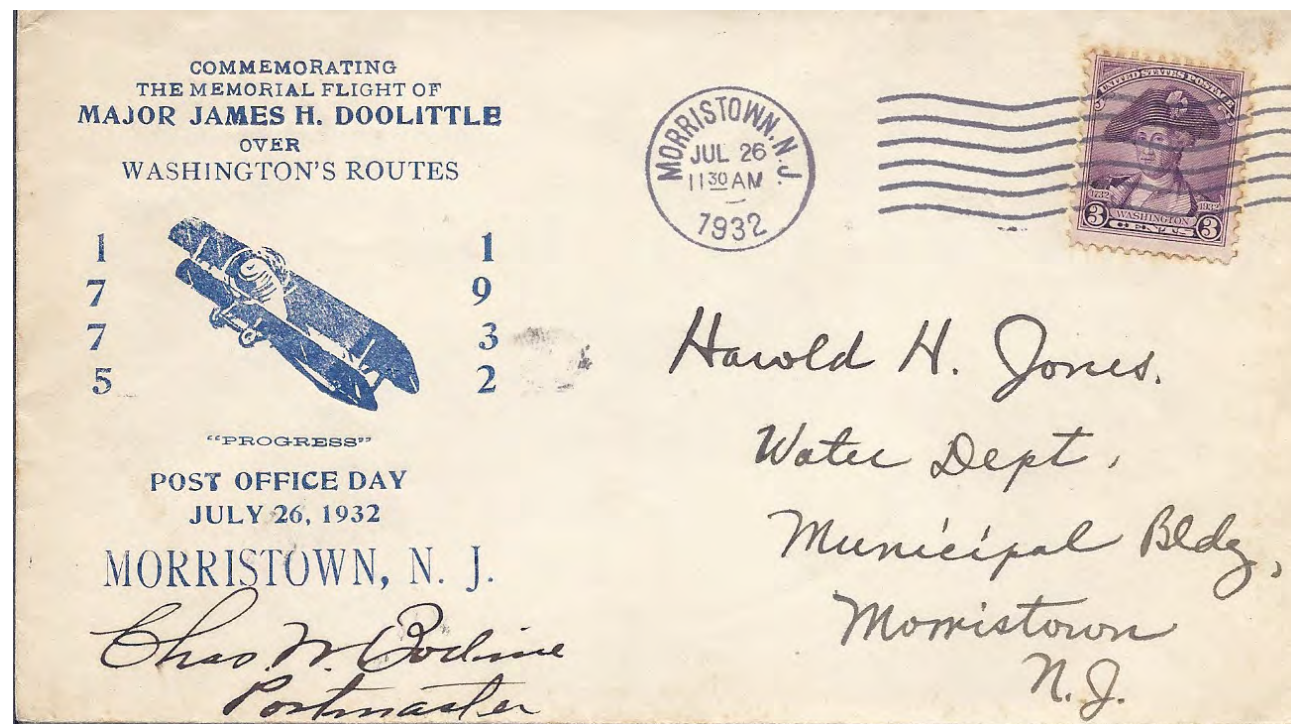 COMMEMORATING
THE MEMORIAL FLIGHT OF
MAJOR JAMES H. DOOLITTLE
OVER
WASHINGTON'S ROUTES
1775
1932
"PROGRESS"
POST OFFICE DAY
JULY 26, 1932
MORRISTOWN, N. J.
Chas. W. Bodine
Postmaster
MORRISTOWN, N.J.
JUL 26
11 30 AM
1932
UNITED STATES POSTAGE
1732 1932
3 WASHINGTON 3
CENTS
Harold H. Jones.
Water Dept,
Municipal Bldg,
Morristown
N.J.